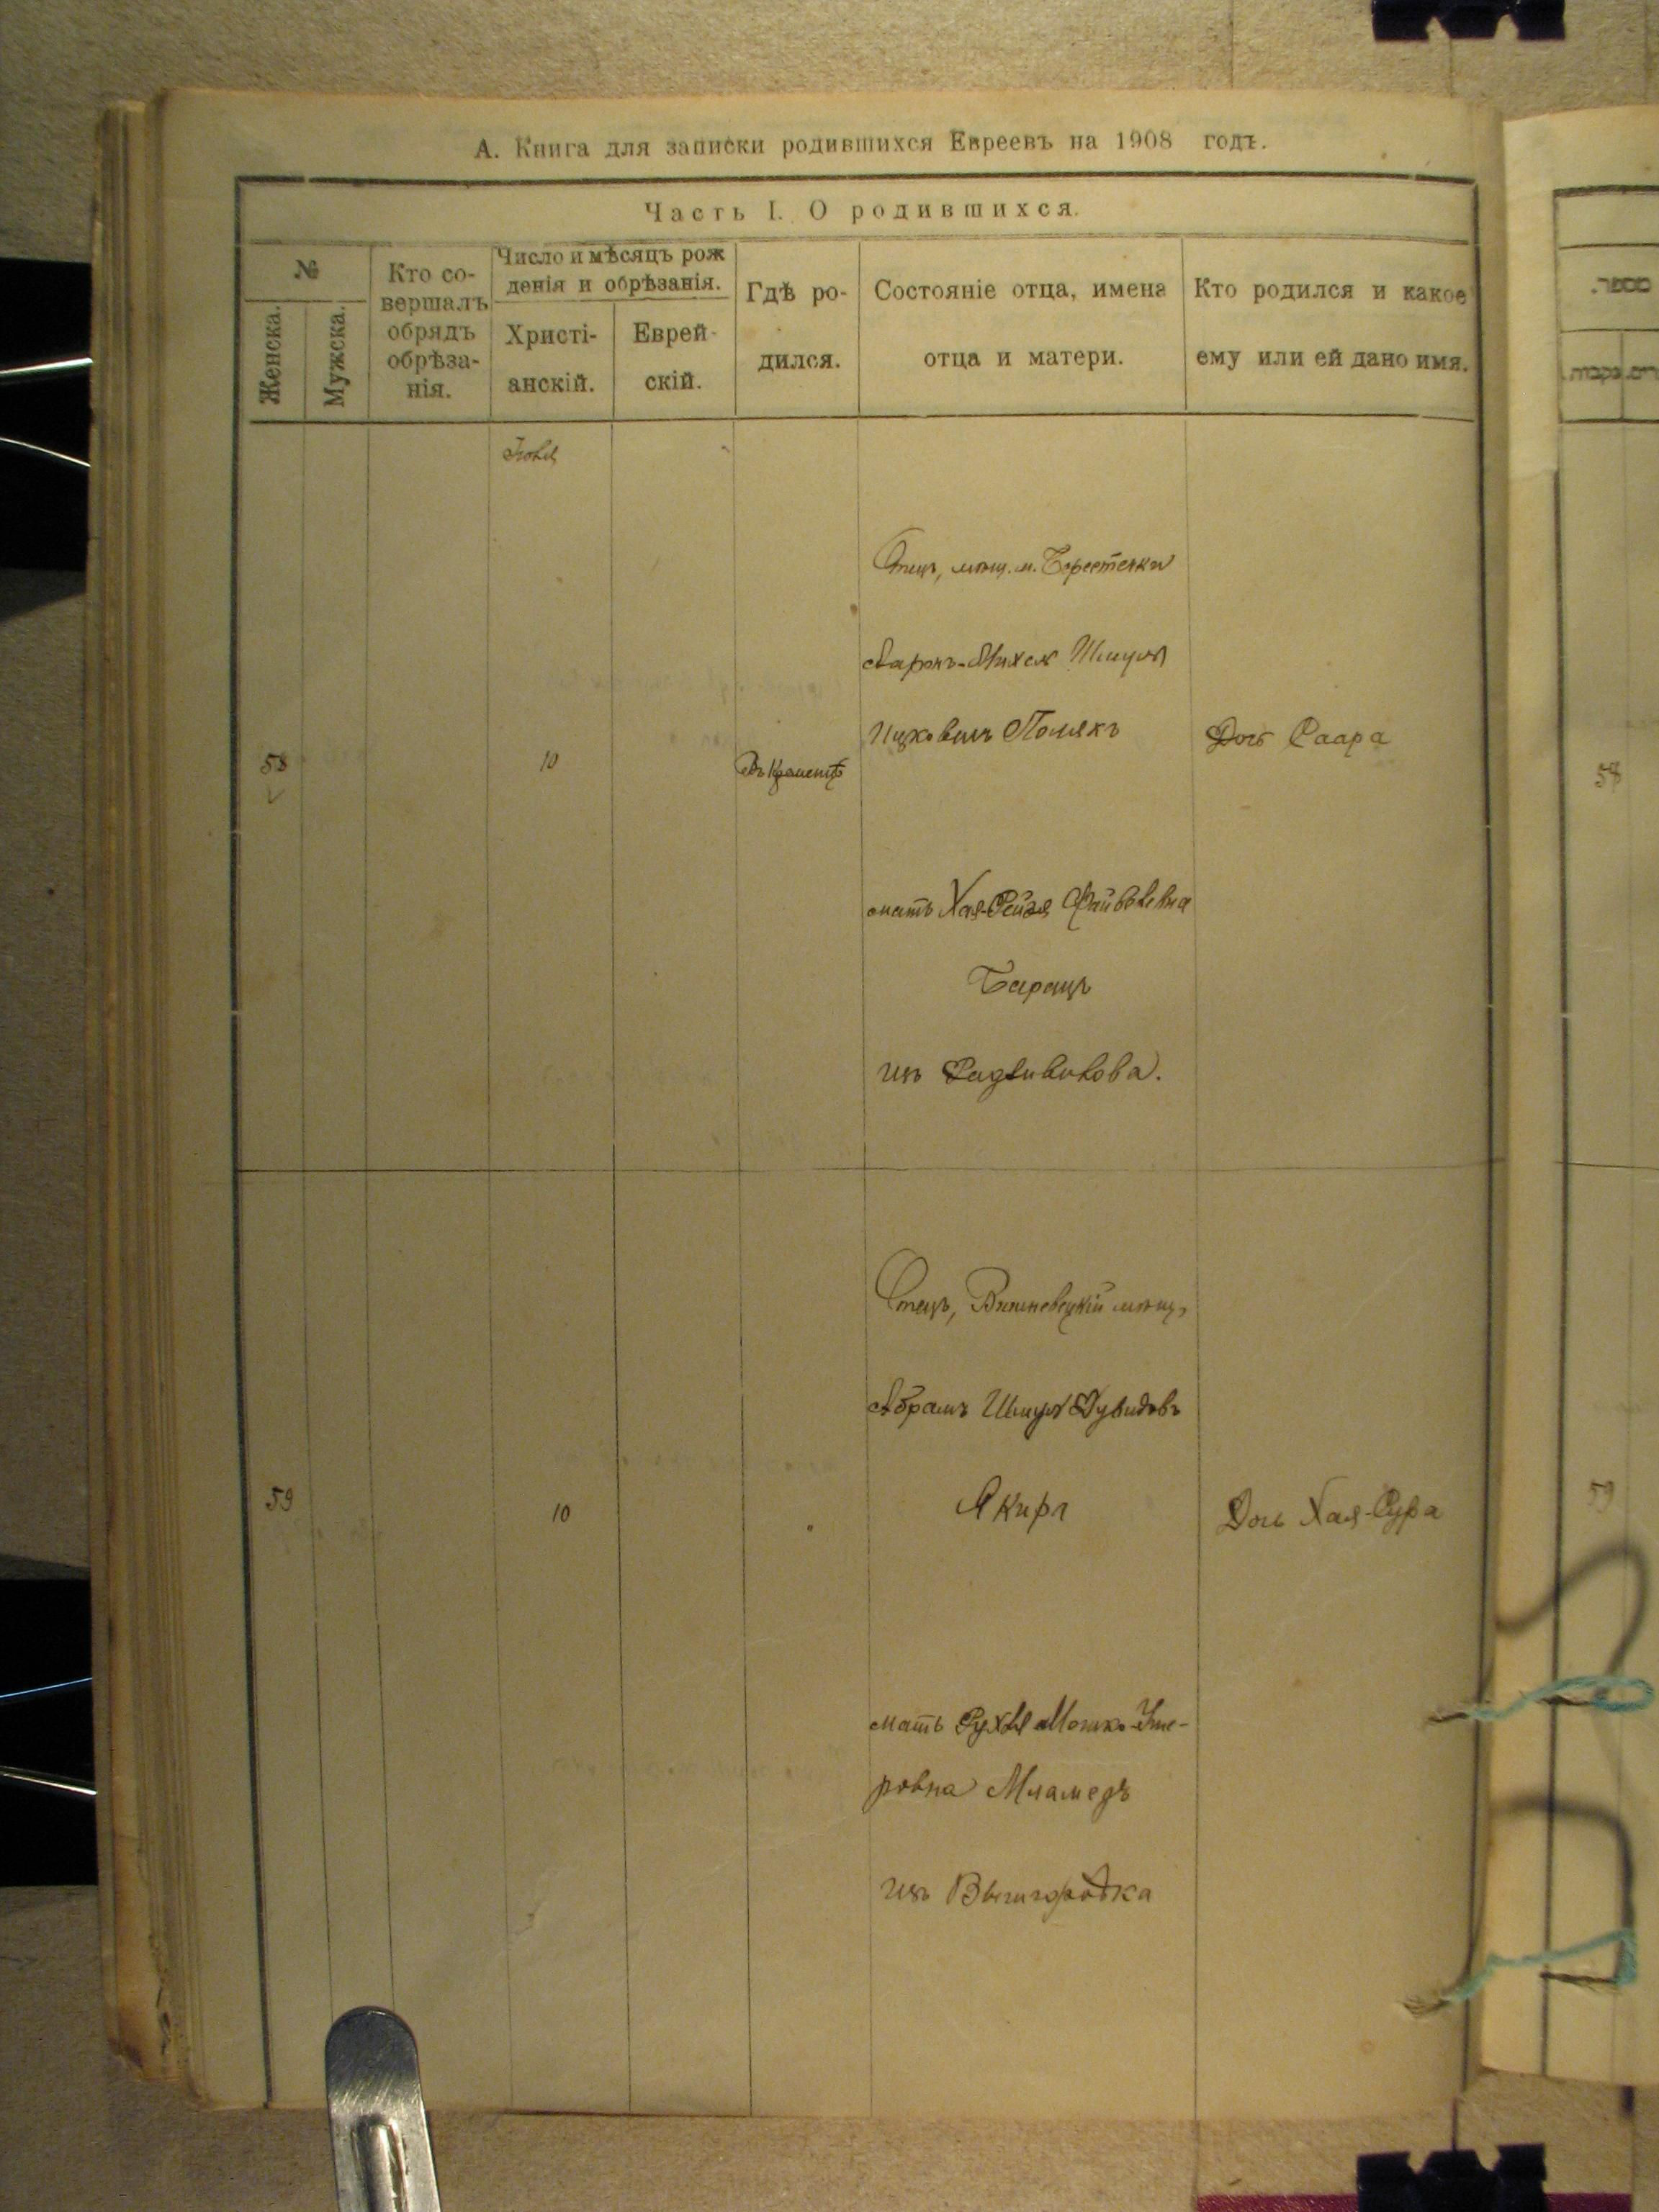 А. Книга для записки родившихся Евреевъ на 1908 годъ.
Часть I. О родившихся.
№
Женска.
Мужска.
Кто со-
вершалъ
обрядъ
обрѣза-
нія.
Число и мѣсяцъ рож
денія и обрѣзанія.
Христі-
анскій.
Еврей-
скій.
Гдѣ ро-
дился.
Состояніе отца, имена
отца и матери.
Кто родился и какое
ему или ей дано имя.
Іюля
58
10
Въ Кременцѣ
Отецъ, мѣщ. м. Берестечка
Ааронъ-Михель Шмуль
Ицковичъ Полякъ
мать Хая-Рейзя Файвелевна
Барацъ
изъ Радзивилова.
Дочь Саара
59
10
"
Отецъ, Вишневецкій мѣщ.
Абрамъ Шмуль Дувидовъ
Якиръ
мать Рухля Мошко-Уше-
ровна Мламедъ
изъ Вышгородка
Дочь Хая-Сура
מספר.
58
59